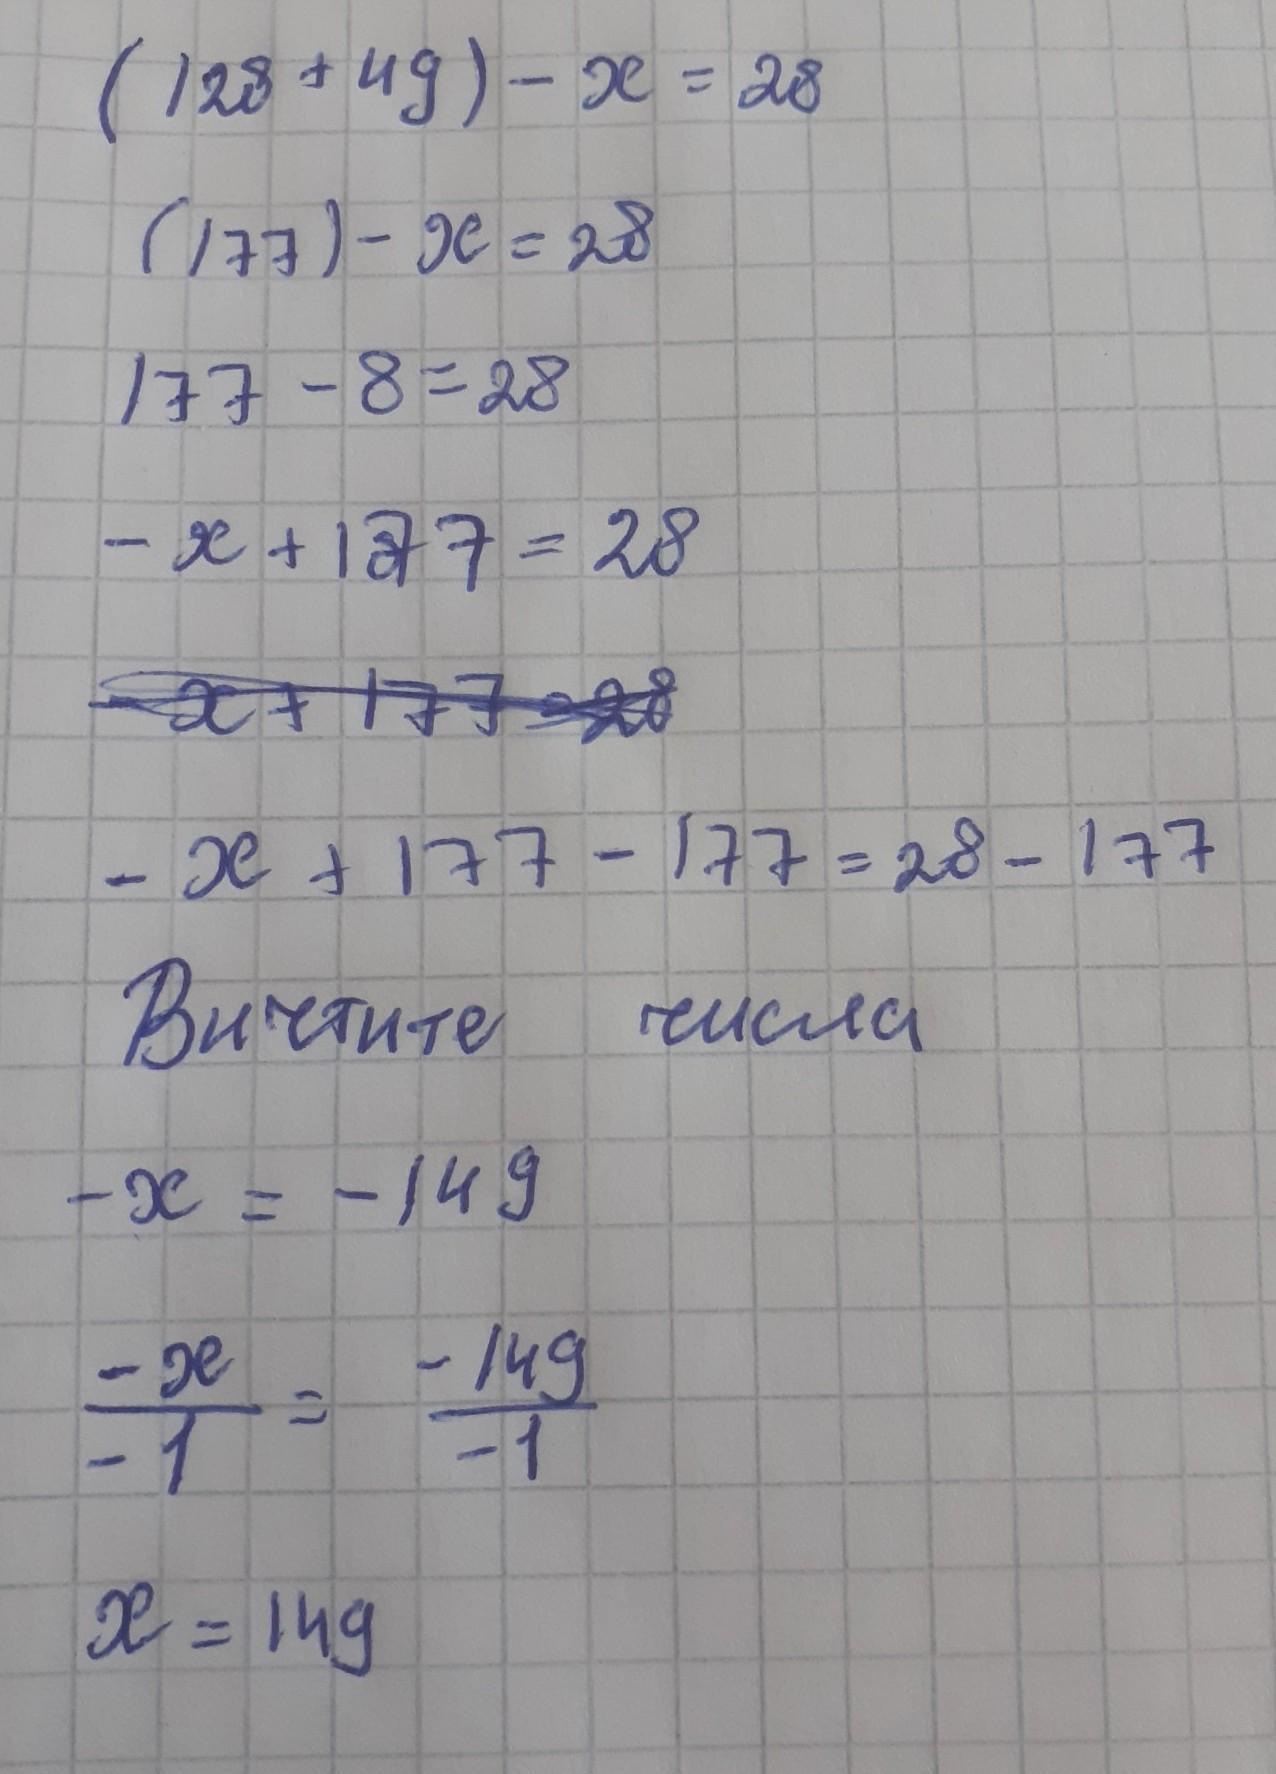 (128 + 49) - x = 28
(177) - x = 28
177 - 8 = 28
- x + 177 = 28
- x + 177 = 28
- x + 177 - 177 = 28 - 177
Вичтите числа
-x = -149
-x / -1 = -149 / -1
x = 149